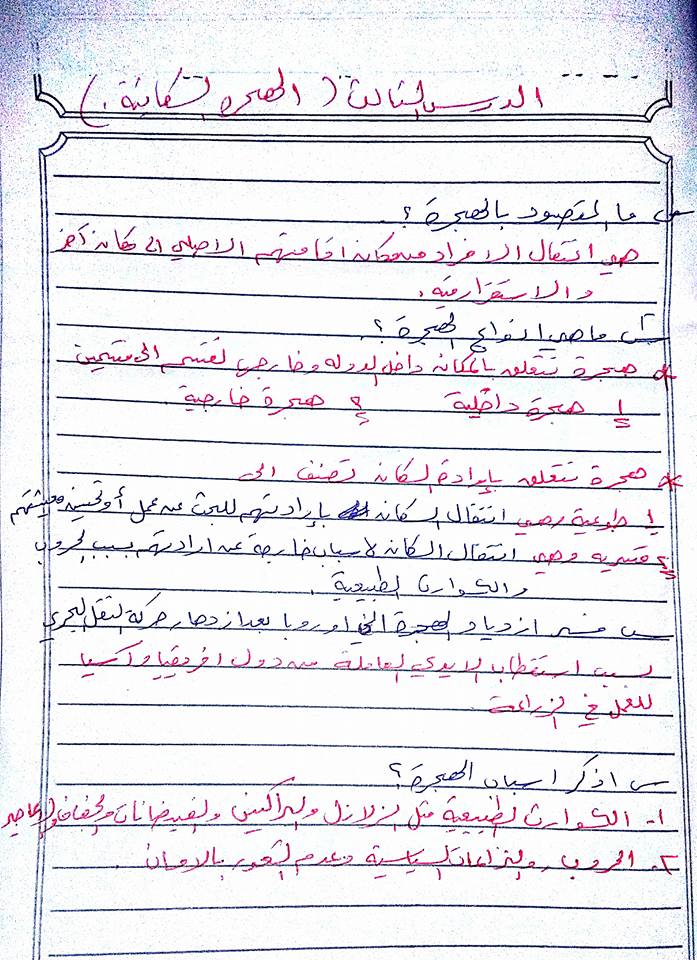 الدرس الثالث ( الهجره السكانية . )
س ما المقصود بالهجرة ؟
هي انتقال الافراد من مكان اقامتهم الاصلي الى مكان آخر
والاستقرار فيه .
س٢ ما هي انواع الهجرة ؟
* هجرة تتعلق بالمكان داخل الدوله وخارجي تقسم الى قسمين
١ هجرة داخلية ٢ هجرة خارجية
* هجرة تتعلق بإرادة السكان تصنف الى
١ طوعية وهي انتقال السكان بإرادتهم للبحث عن عمل أو تحسين معيشتهم
٢ قسريه وهي انتقال السكان لاسباب خارجة عن ارادتهم بسبب الحروب
والكوارث الطبيعية .
س فسر ازدياد الهجرة الى اوروبا بعد ازدهار حركة النقل البحري
بسبب استقطاب الايدي العاملة من دول افريقيا وآسيا
للعمل في الزراعة
س اذكر اسباب الهجرة ؟
١- الكوارث الطبيعية مثل الزلازل والبراكين والفيضانات والجفاف والاعاصير
٢. الحروب والنزاعات السياسية وعدم الشعور بالامان